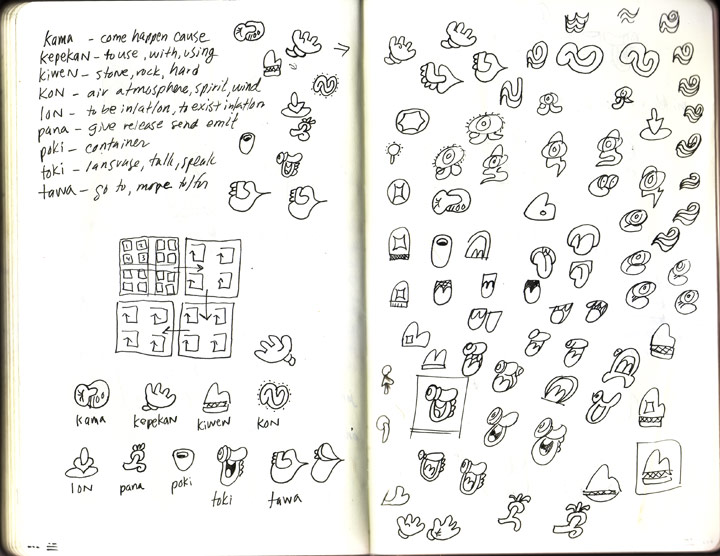 kama - come happen cause
kepekan - to use, with, using
kiwen - stone, rock, hard
kon - air atmosphere, spirit, wind
lon - to be in/at/on, to exist in/at/on
pana - give release send emit
poki - container
toki - language, talk, speak
tawa - go to, move to/for
kama kepekan kiwen kon
lon pana poki toki tawa